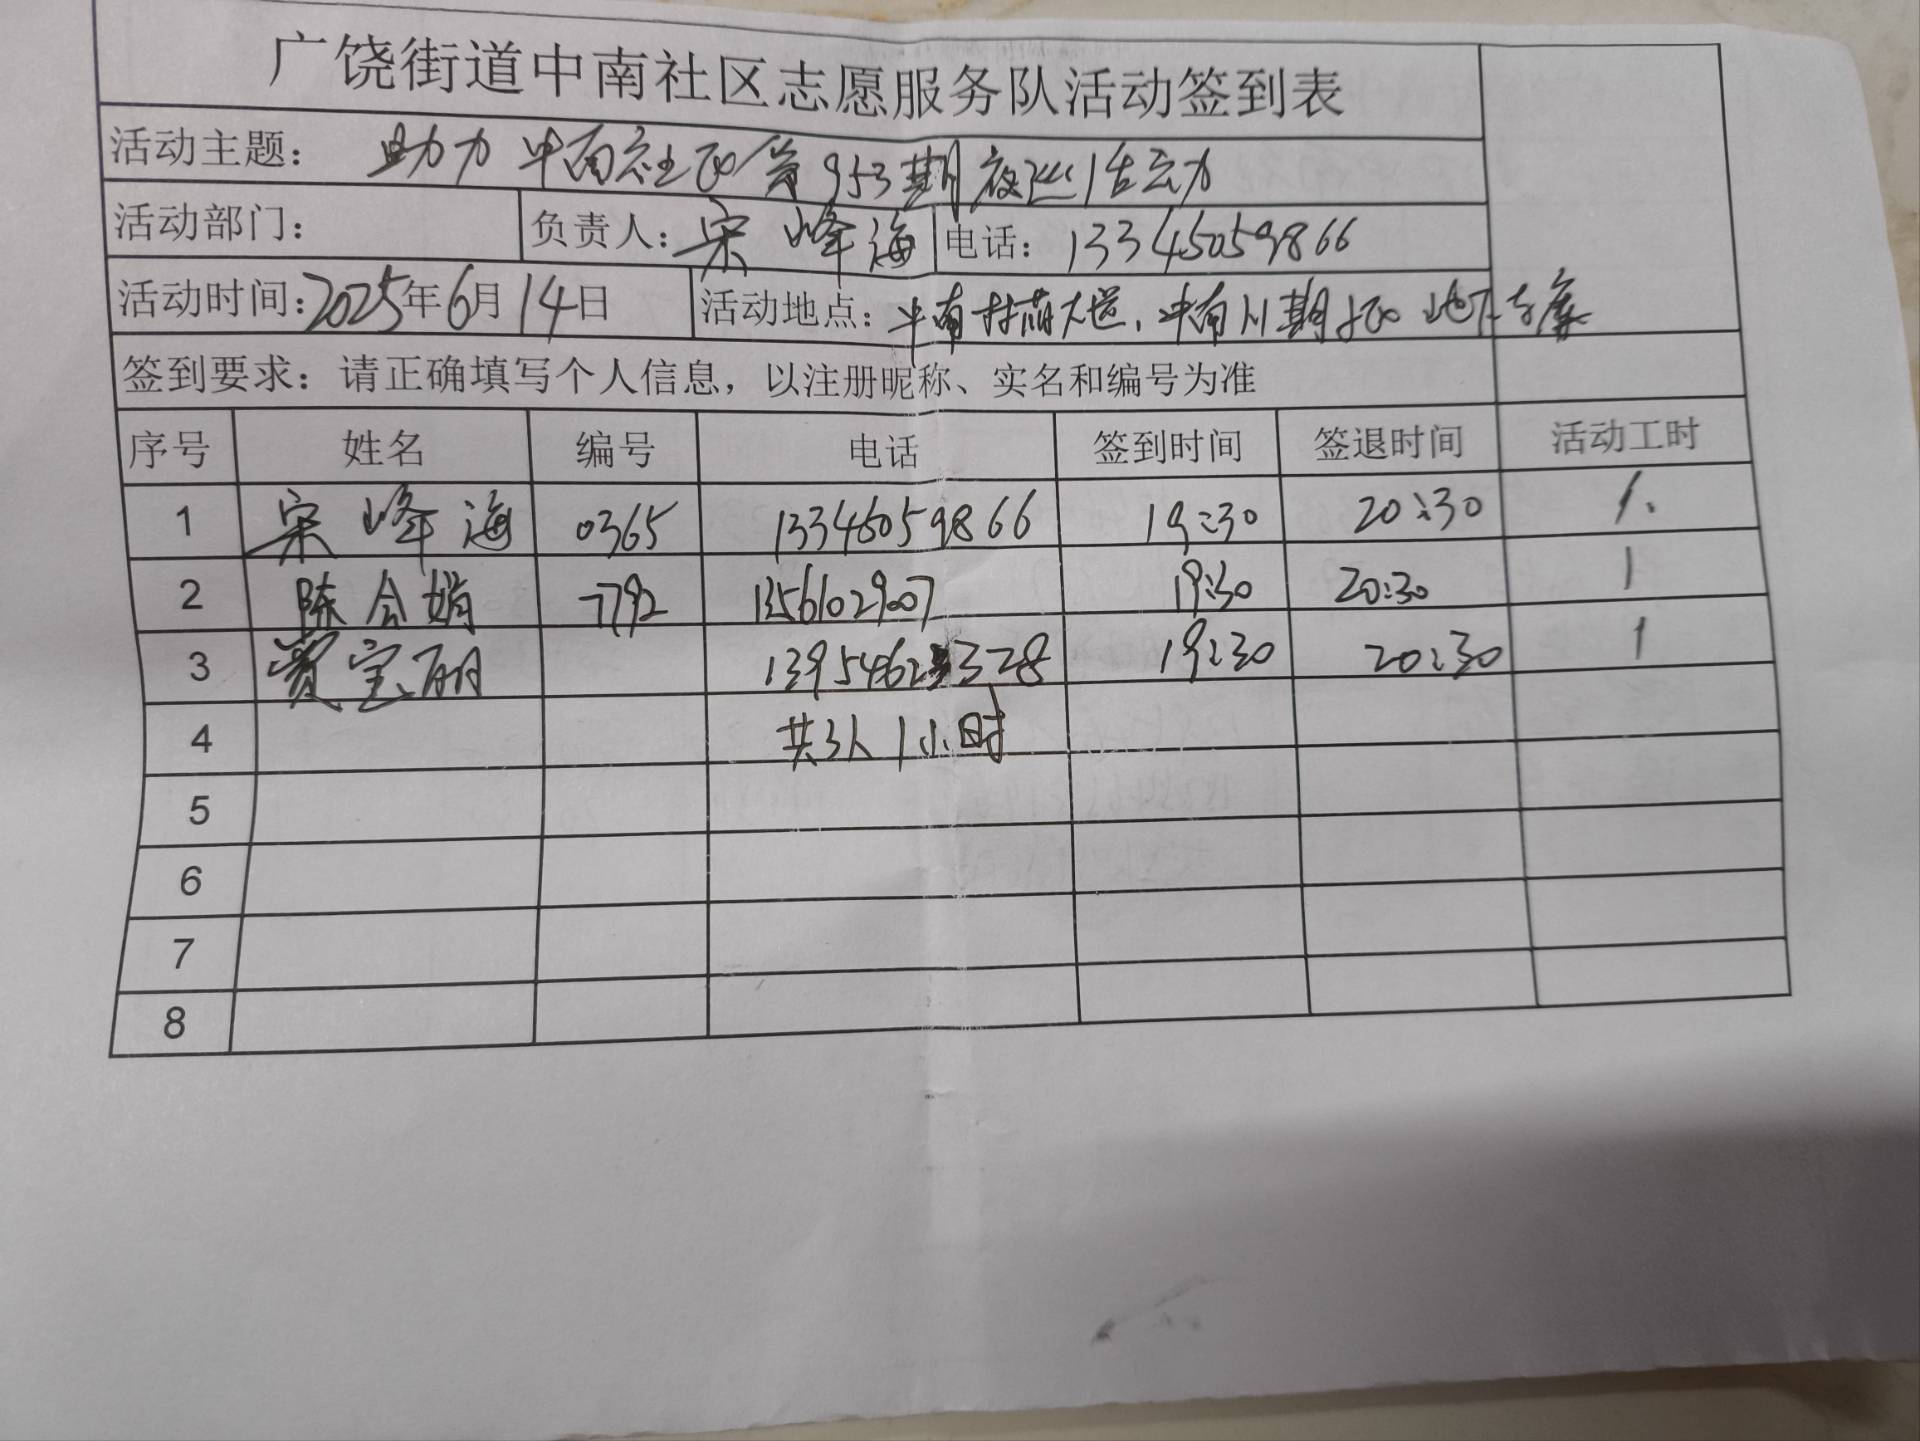 广饶街道中南社区志愿服务队活动签到表
活动主题： 助力中南社区第953期夜巡活动
活动部门： 负责人：宋峰海 电话：13345059866
活动时间：2025年6月14日 活动地点：中南 大道、中南 期 地下车库
签到要求：请正确填写个人信息，以注册昵称、实名和编号为准
序号 姓名 编号 电话 签到时间 签退时间 活动工时
1 宋峰海 0365 13345059866 19:30 20:30 1.
2 陈会娟 7792 13561029007 19:30 20:30 1
3 贾宝丽 19:30 20:30 1
4 共3人1小时
5
6
7
8